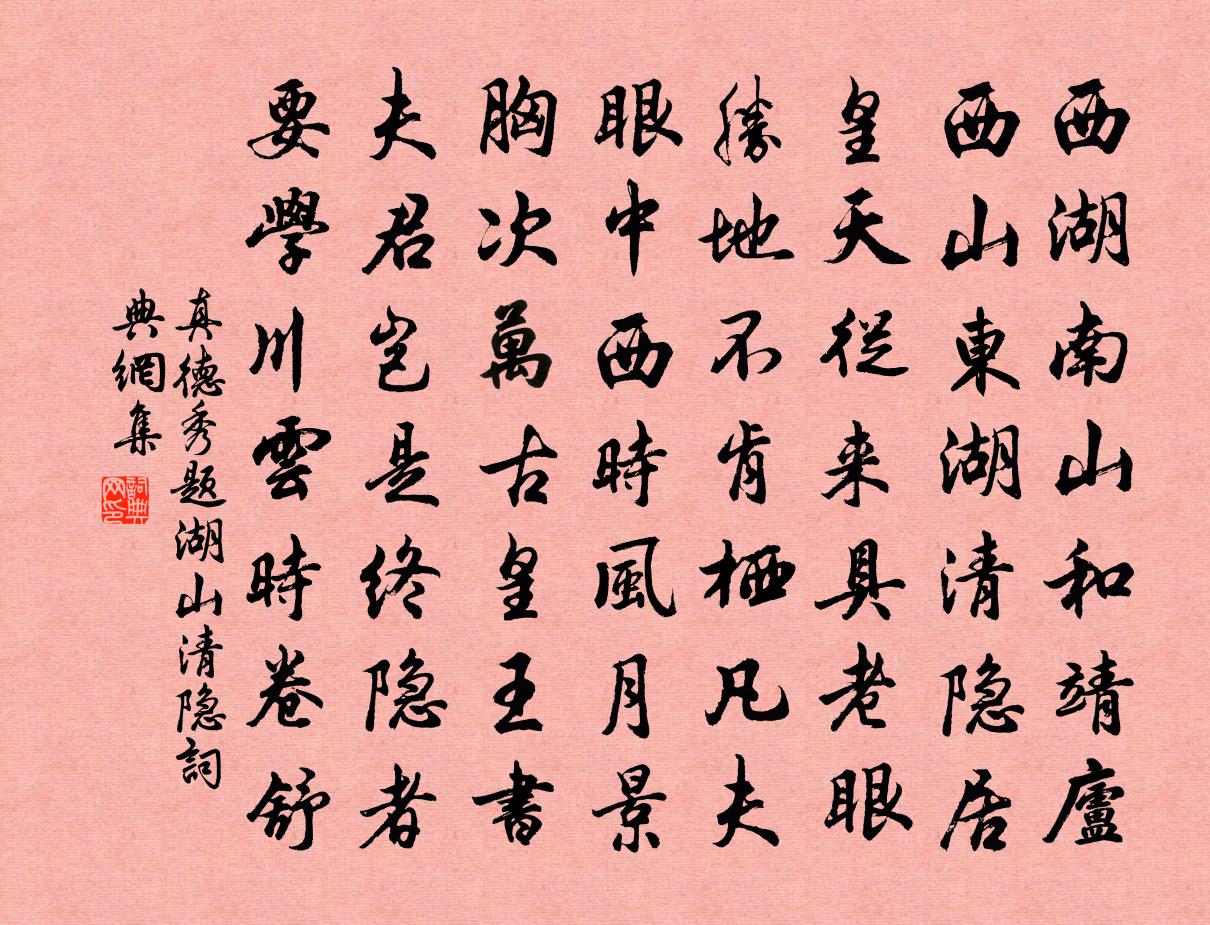 西湖南山和靖廬
西山東湖清隐居
皇天從来具老眼
勝地不肯栖凡夫
眼中西時風月景
胸次萬古皇王書
夫君岂是终隐者
要學川雲時卷舒
真德秀题湖山清隐詞
典網集
詞典
网印